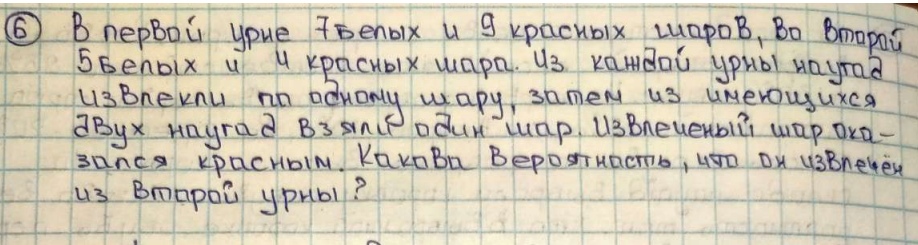 6 В первой урне 7 белых и 9 красных шаров, во второй
5 белых и 4 красных шара. Из каждой урны наугад
извлекли по одному шару, затем из имеющихся
двух наугад взяли один шар. Извлеченый шар ока-
зался красным. Какова вероятность, что он извлечён
из второй урны?